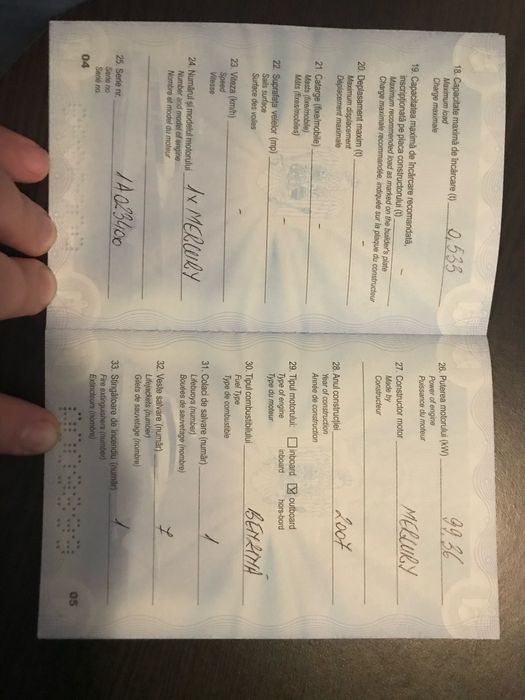 18. Capacitate maximă de încărcare (t) 0,533
Maximum load
Charge maximale
19. Capacitatea maximă de încărcare recomandată,
inscripționată pe placa constructorului (t) -
Maximum recommended load as marked on the builder's plate
Charge maximale recommandée, indiquée sur la plaque du constructeur
20. Deplasament maxim (t) -
Maximum displacement
Déplacement maximale
21 Catarge (fixe/mobile) -
Masts (fixe/mobile)
Mâts (fixes/mobiles)
22. Suprafața velelor (mp) -
Sails surface
Surface des voiles
23. Viteza (km/h) -
Speed
Vitesse
24. Numărul și modelul motorului 1x MERCURY
Number and model of engine
Nombre et model du moteur
25. Serie nr. 1A023400
Serie no
Serie no.
04
26. Puterea motorului (kW) 99,36
Power of engine
Puissance du moteur
27. Constructor motor MERCURY
Made by
Constructeur
28. Anul construcției 2007
Year of construction
Année de construction
29. Tipul motorului: inboard outboard
Type of engine inboard hors-bord
Type du moteur
30. Tipul combustibilului BENZINĂ
Fuel Type
Type de combustible
31. Colaci de salvare (număr) 1
Lifebuoys (number)
Bouées de sauvetage (nombre)
32. Veste salvare (număr) 7
Lifejackets (number)
Gilets de sauvetage (nombre)
33. Stingătoare de incendiu (număr) 1
Fire extinguishers (number)
Extincteurs (nombre)
05